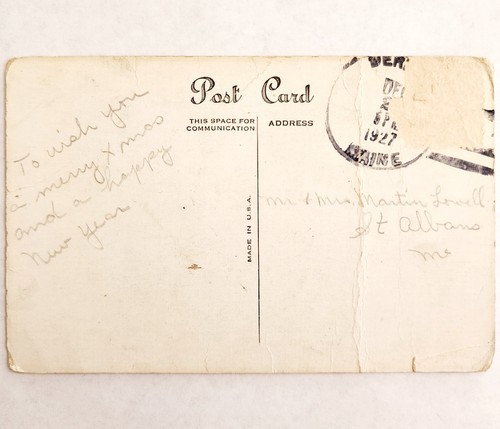 Post Card
THIS SPACE FOR
COMMUNICATION
ADDRESS
To wish you
a merry Xmas
and a happy
New Year
MADE IN U.S.A.
DE
1927
MAINE
Mr & Mrs. Martin Lowell
St Albans
Me